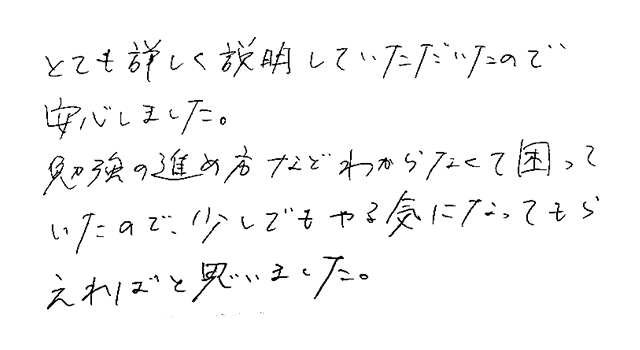 とても詳しく説明していただいたので
安心しました。
勉強の進め方などわからなくて困って
いたので、少しでもやる気になってもら
えればと思いました。